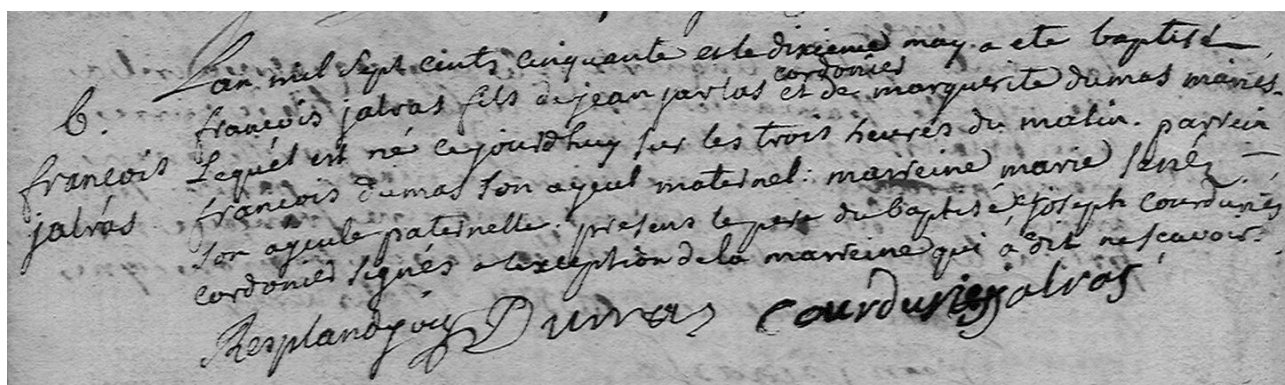 L'an mil sept cents cinquante et le dixieme may a eté baptisé
cordonier
b. françois jalvas fils de jean jarlas et de marguerite dumas mariés.
françois Lequel est né cejourdhuy sur les trois heures du matin. parrein
jalvas françois dumas son ayeul maternel: marreine marie
son ayeule paternelle. presens le pere du baptisé, et joseph courduriés
cordonier signés a lexception de la marreine qui a dit ne scavoir.
Resplandy Dumas courduries jalvas